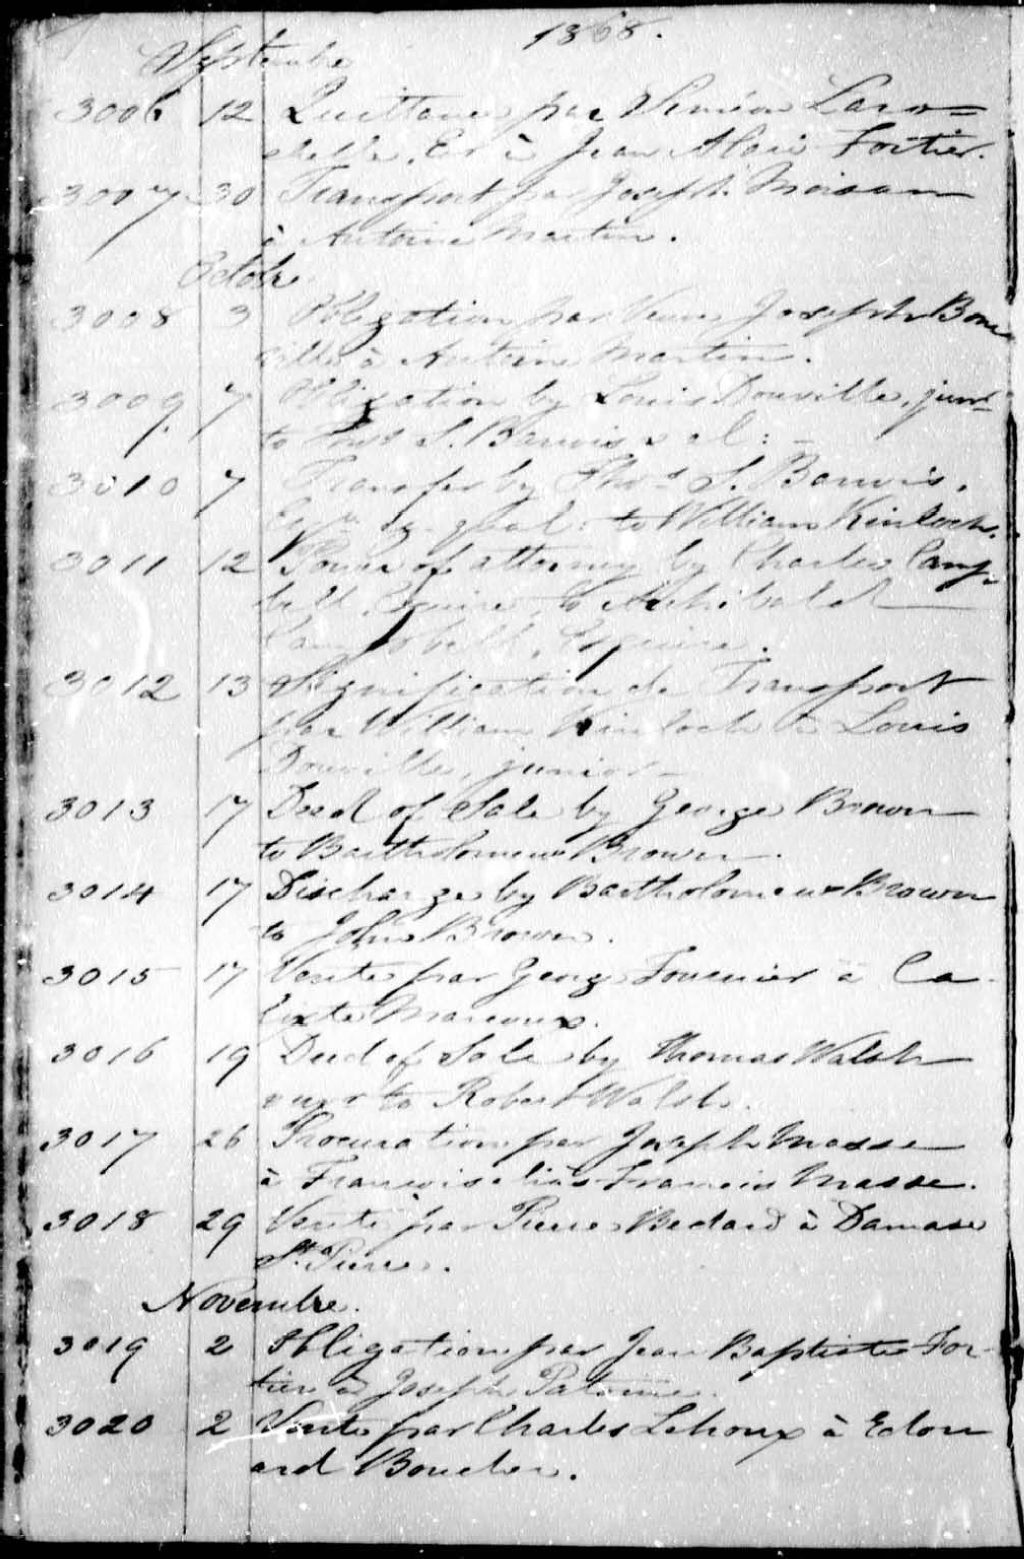 1868.
Septembre
3006 12 Quittance par Siméon Laro=
chelle, Er à Jean Alexis Fortier.
3007 30 Transport par Joseph Moisan
à Antoine Martin.
Octobre
3008 3 Obligation par Veuve Joseph Bon
ville à Antoine Martin.
3009 7 Obligation by Louis Donville, junr
to Thos S. Barwis & al: -
3010 7 Transfer by Thos S. Barwis,
to William Kinloch.
3011 12 Power of attorney by Charles Camp-
bell, Esquire, to Archibald
Campbell, Esquire.
3012 13 Signification de Transport
par William Kinloch à Louis
Donville, junior -
3013 17 Deed of Sale by George Brown
to Bartholomew Brown.
3014 17 Discharge by Bartholomew Brown
to John Brown.
3015 17 Vente par George Fournier à Ca-
lixte Marcoux.
3016 19 Deed of Sale by Thomas Walsh
to Robert Walsh.
3017 26 Procuration par Joseph Masse
à François alias Francis Masse.
3018 29 Vente par Pierre Bedard à Damase
St. Pierre.
Novembre.
3019 2 Obligation par Jean Baptiste For-
tier à Joseph Patoine.
3020 2 Vente par Charles Lehoux à Edou
ard Boucher.